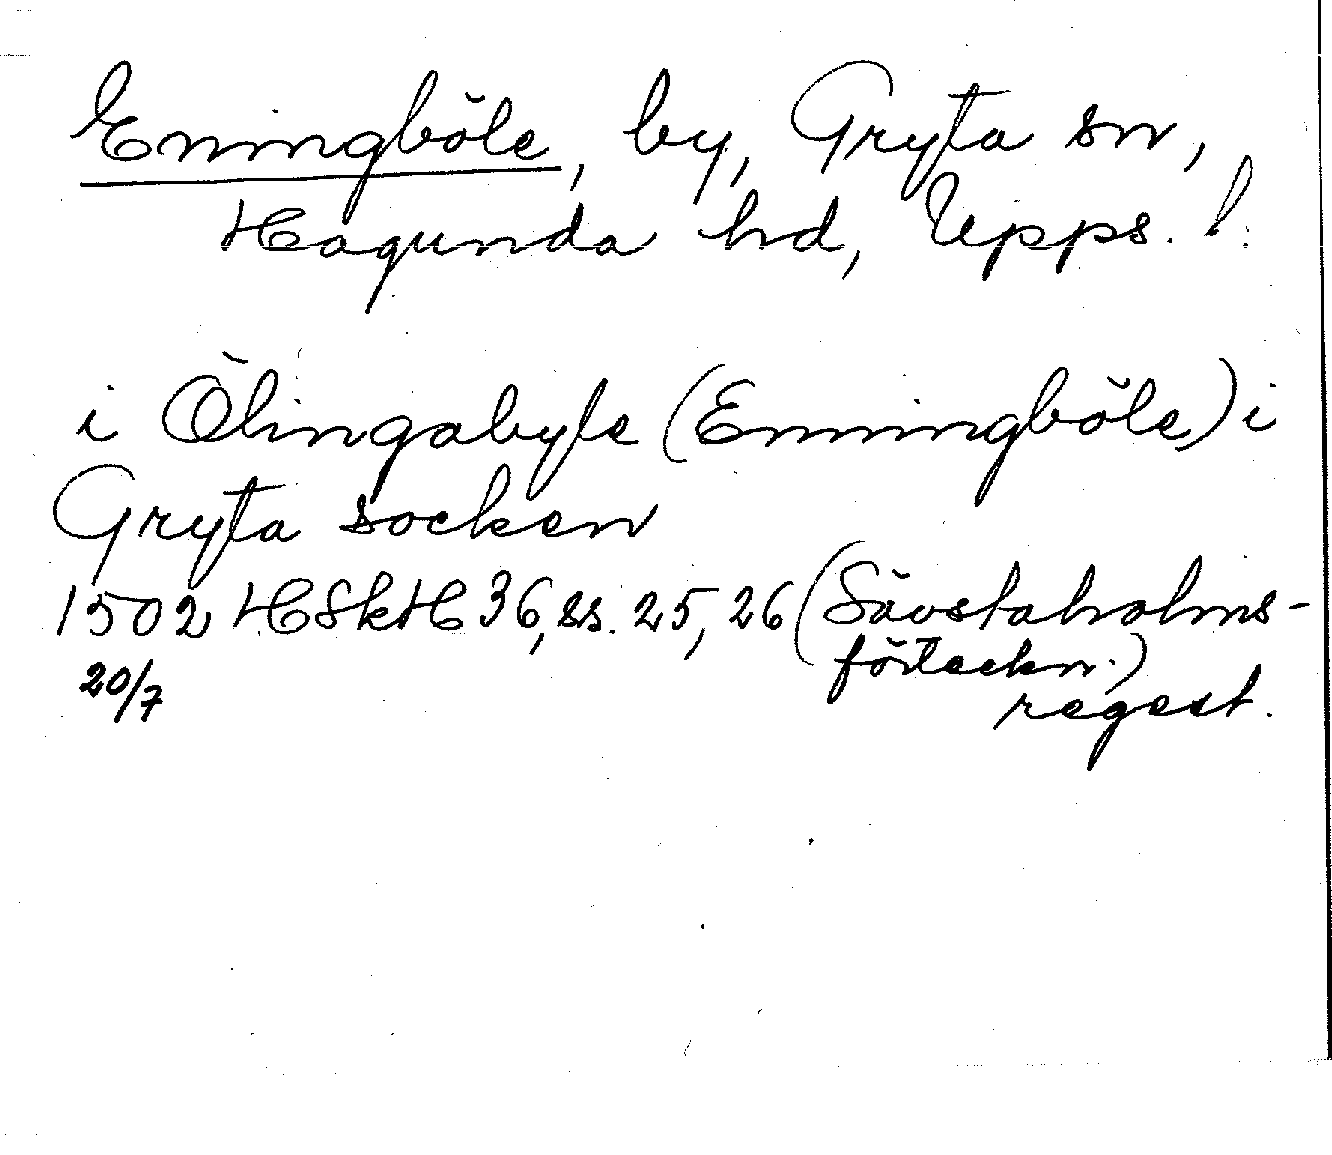 Eningböle, by, Gryta sn,
Hagunda hd, Upps. l.
i Ölingabyle (Enningböle) i
Gryta socken
1502 HSkH 36, ss. 25, 26 (Sävstaholms-
förteckn.)
20/7
regest.